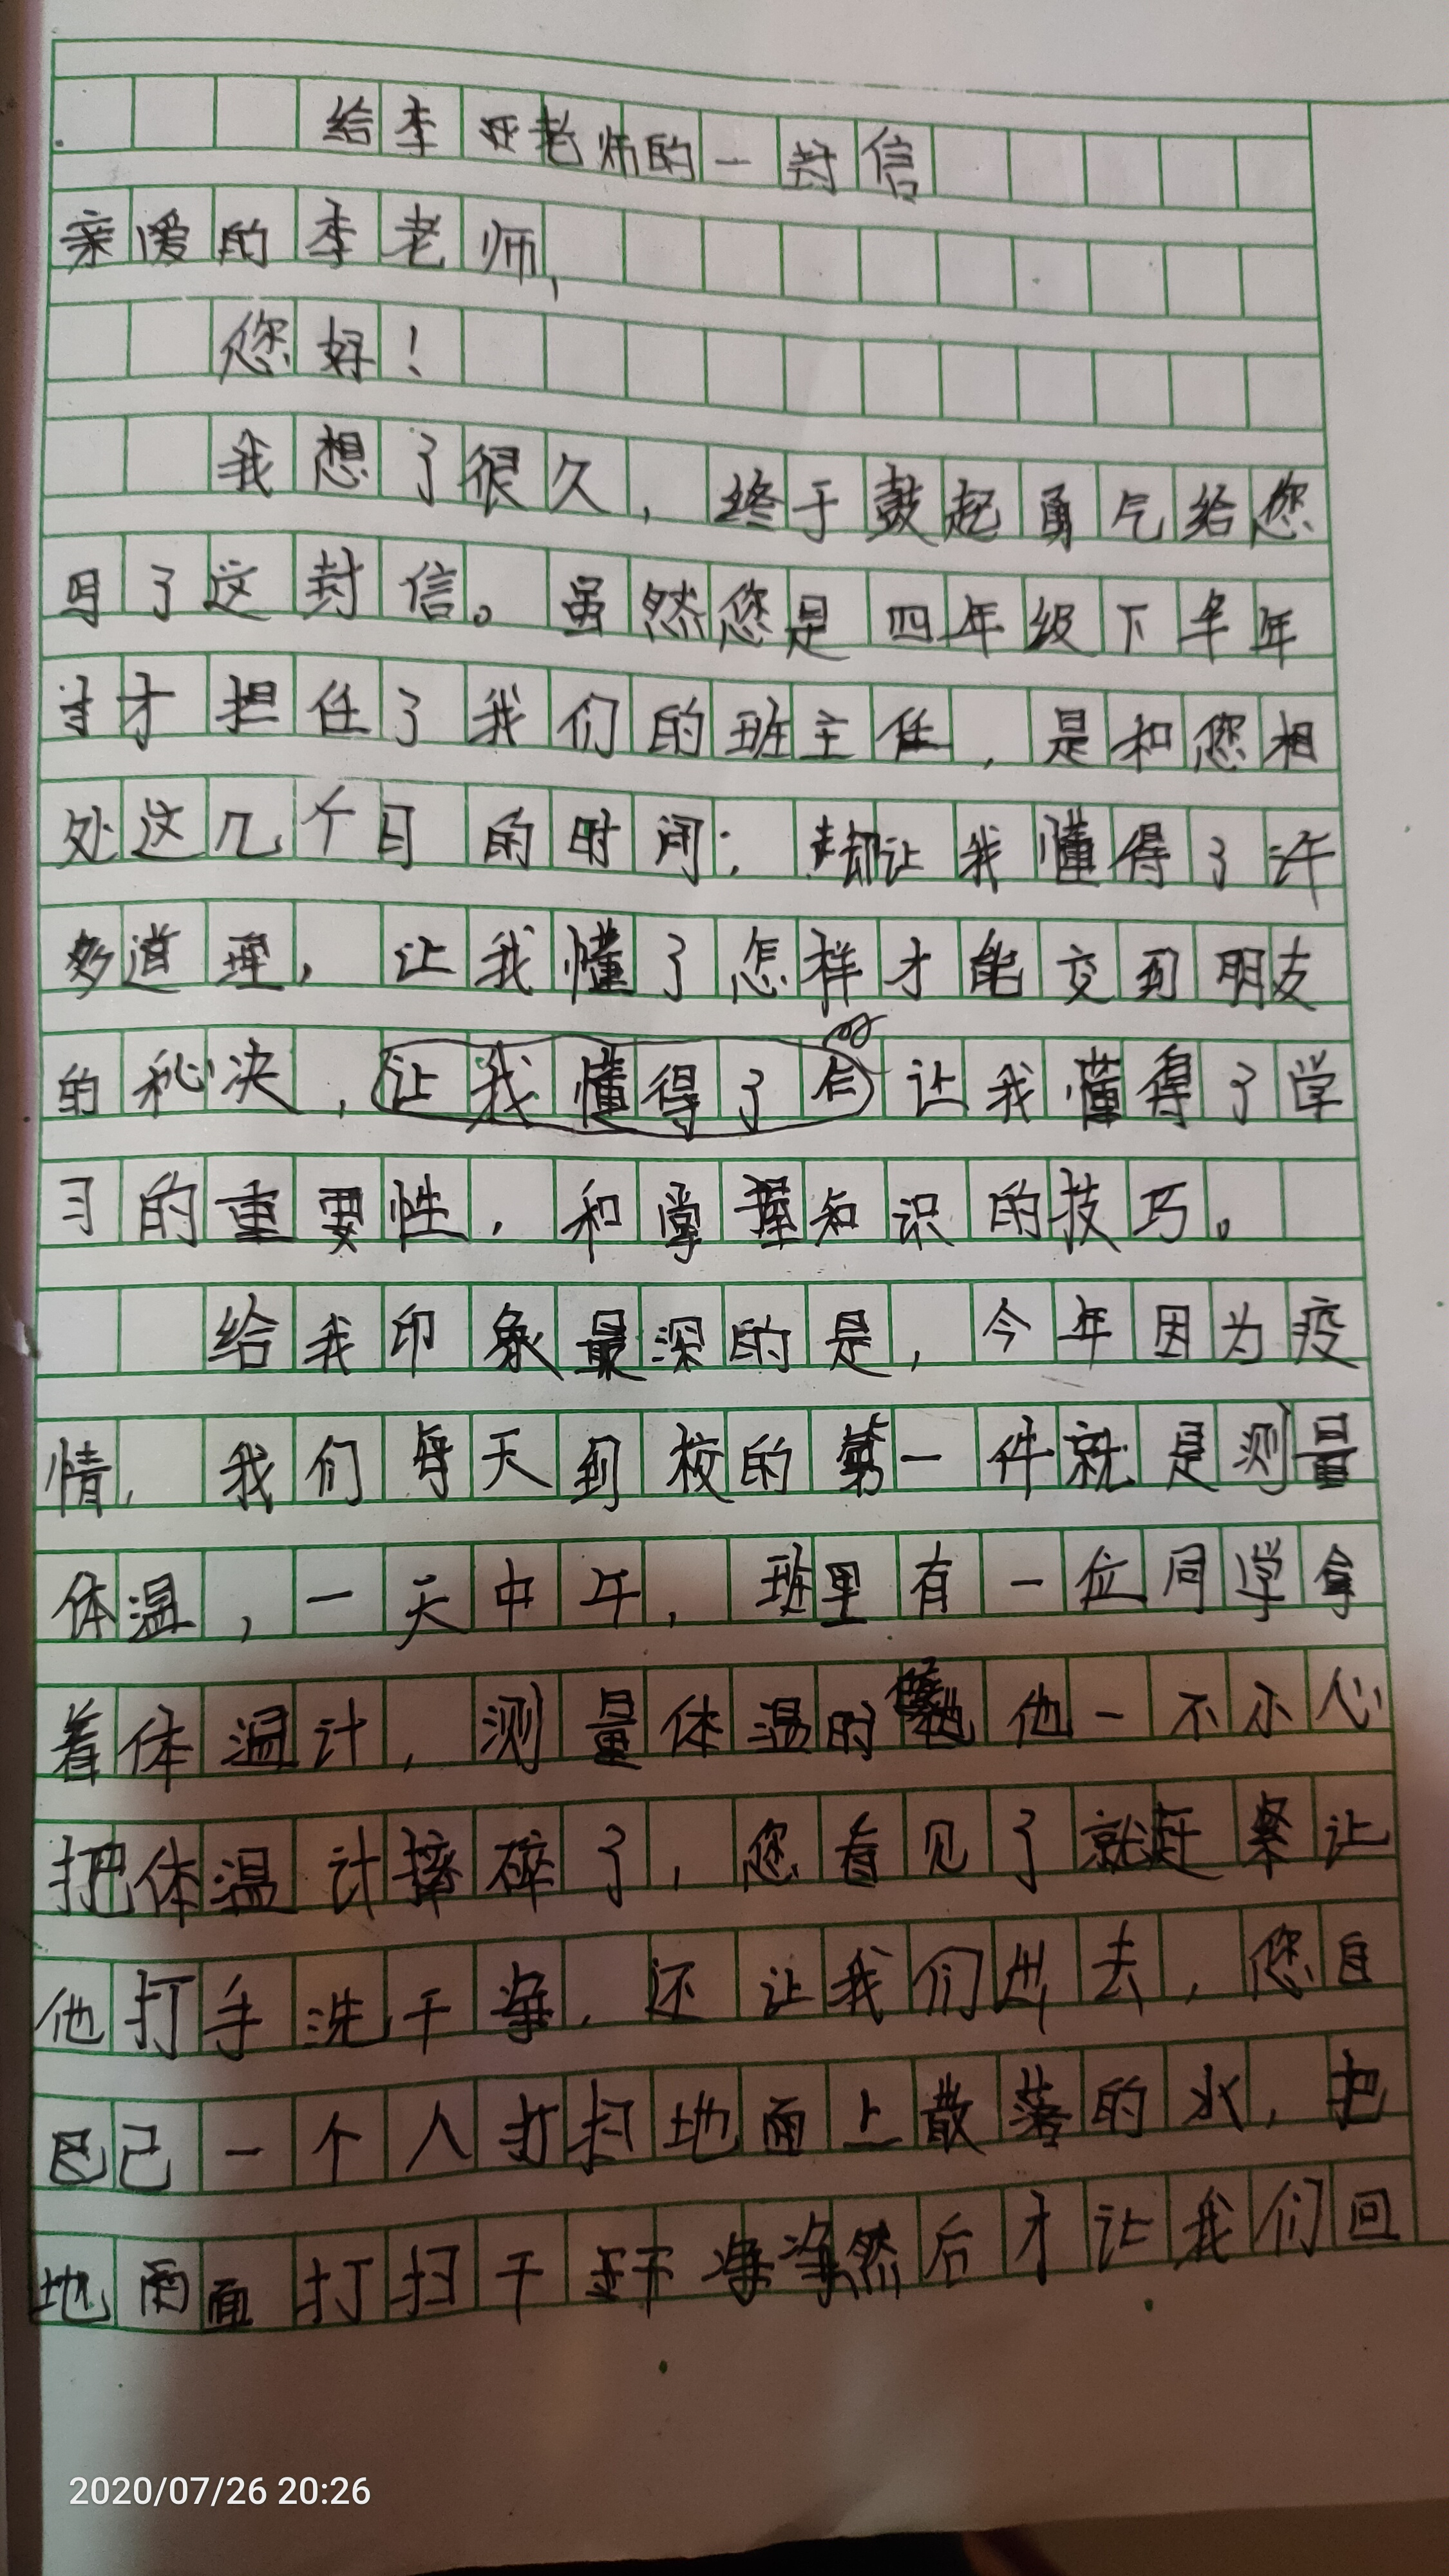 给李老师的一封信
亲爱的李老师,
您好！
我想了很久，终于鼓起勇气给您
写了这封信。虽然您是四年级下半年
才担任了我们的班主任，是和您相
处这几个月的时间，却让我懂得了许
多道理，让我懂了怎样才能交到朋友
的秘决，让我懂得了让我懂得了学
习的重要性，和掌握知识的技巧。
给我印象最深的是，今年因为疫
情，我们每天到校的第一件就是测量
体温，一天中午，班里有一位同学拿
着体温计，测量体温时他一不小心
把体温计摔碎了，您看见了就赶紧让
他打手洗干净，还让我们出去，您自
己一个人打扫地面上散落的水，把
地面打扫干净然后才让我们回
2020/07/26 20:26